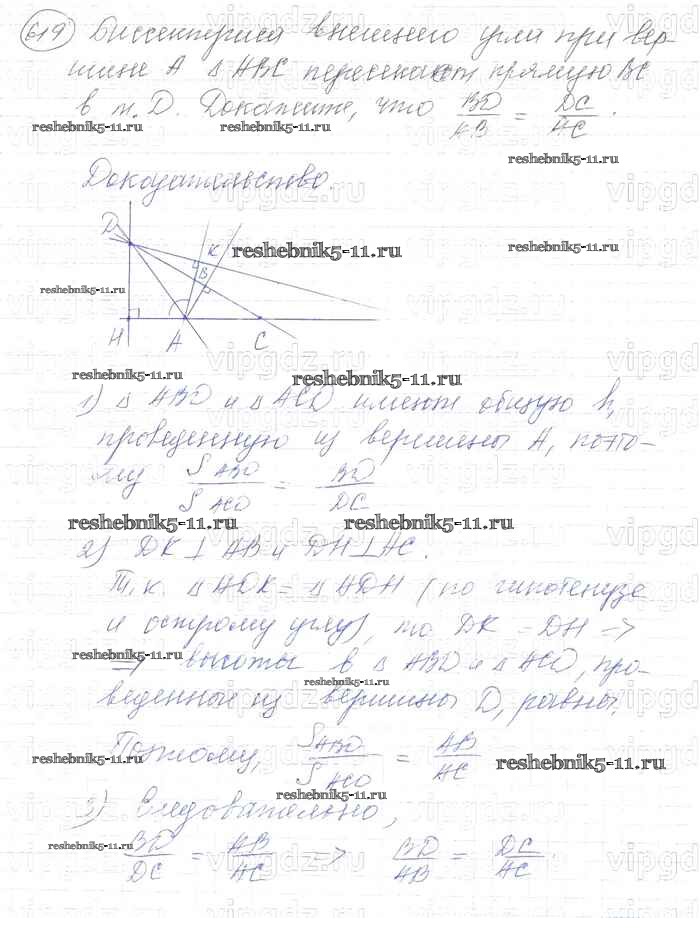 619 Биссектриса внешнего угла при вер-
шине А △ АВС пересекает прямую ВС
в т. D. Докажите, что BD/AB = DC/AC.
reshebnik5-11.ru reshebnik5-11.ru
reshebnik5-11.ru
Доказательство.
vipgdz.ru
D
K
B
reshebnik5-11.ru
reshebnik5-11.ru
reshebnik5-11.ru
H A C
reshebnik5-11.ru
reshebnik5-11.ru
1) △ ABD и △ ACD имеют общую h,
проведенную из вершины А, поэто-
му S ABD / S ACD = BD / DC
reshebnik5-11.ru reshebnik5-11.ru
2) DK ⊥ AB и DH ⊥ AC.
Т.к. △ ADK = △ ADH (по гипотенузе
и острому углу), то DK = DH =>
=> высоты в △ ABD и △ ACD, про-
reshebnik5-11.ru
reshebnik5-11.ru
веденные из вершины D, равны.
Поэтому, S ABD / S ACD = AB / AC
reshebnik5-11.ru
reshebnik5-11.ru
reshebnik5-11.ru
3) Следовательно,
reshebnik5-11.ru
BD/DC = AB/AC => BD/AB = DC/AC